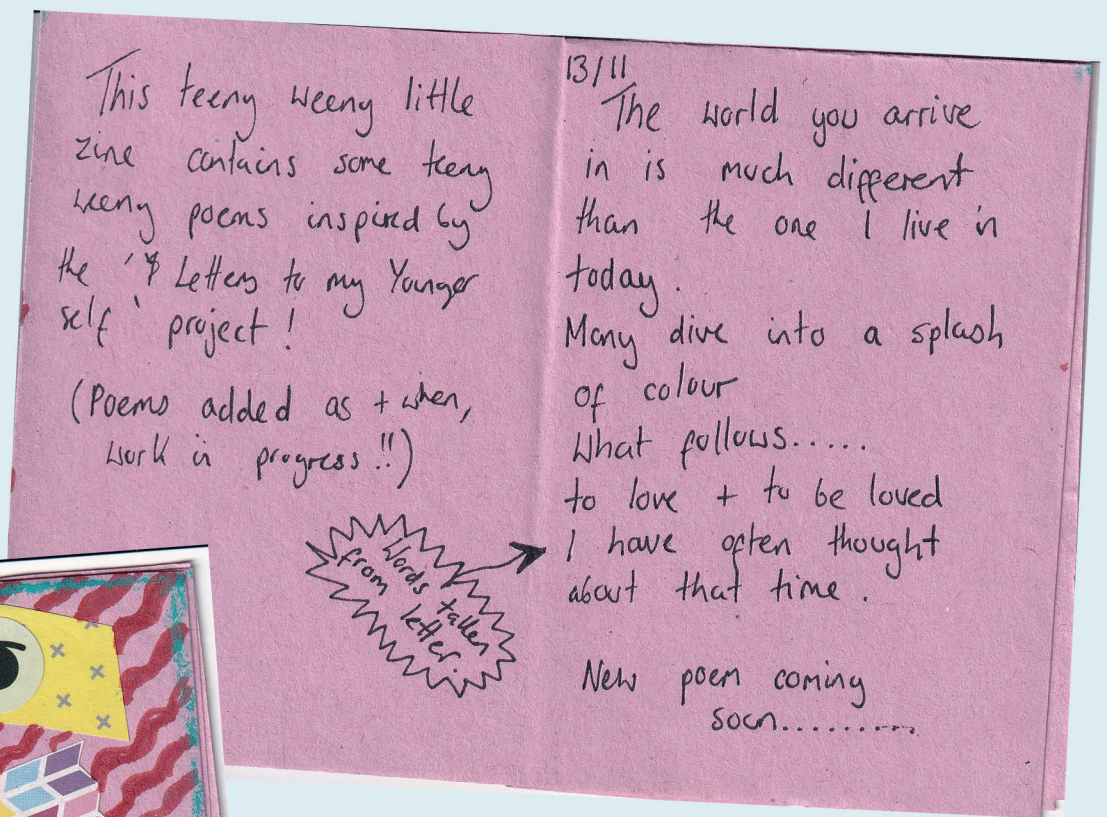 This teeny weeny little
zine contains some teeny
weeny poems inspired by
the ' Letters to my Younger
self ' project !
(Poems added as + when,
work in progress !!)
Words taken
from letter.
13/11
The world you arrive
in is much different
than the one I live in
today.
Many dive into a splash
of colour
What follows.....
to love + to be loved
I have often thought
about that time.
New poem coming
soon.........